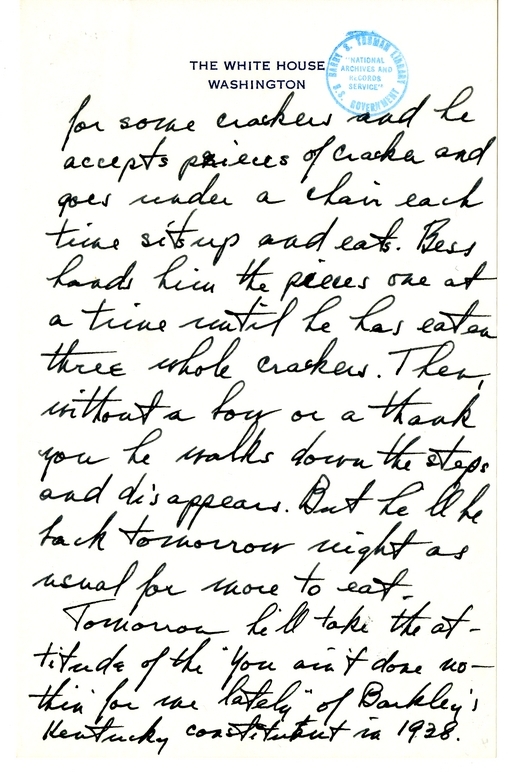 THE WHITE HOUSE
WASHINGTON
HARRY S. TRUMAN LIBRARY
"NATIONAL
ARCHIVES AND
RECORDS
SERVICE"
U.S. GOVERNMENT
for some crackers and he
accepts pieces of cracker and
goes under a chair each
time sits up and eats. Bess
hands him the pieces one at
a time until he has eaten
three whole crackers. Then,
without a bow or a thank
you he walks down the steps
and disappears. But he'll be
back tomorrow night as
usual for more to eat.
Tomorrow he'll take the at-
titude of the "You ain't done no-
thin' for me lately" of Barkley's
Kentucky constituent in 1938.